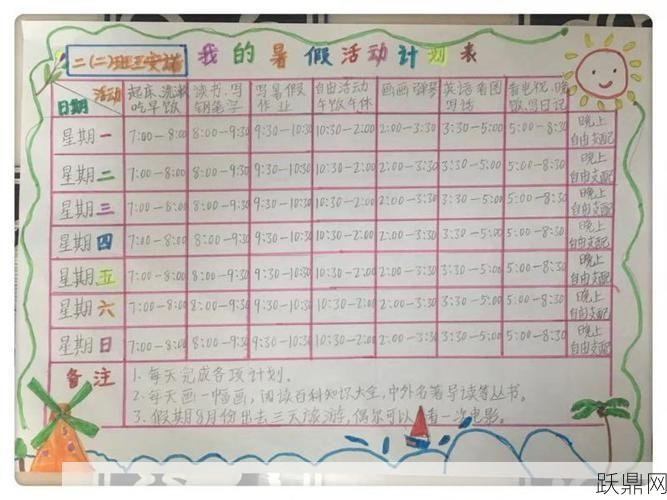 二(二)班王安诺 我的暑假活动计划表
日期 活动 起床、洗漱吃早饭 读书、写钢笔字 写暑假作业 自由活动午饭午休 画画弹琴 英语看图写话 看电视、晚饭、写日记
星期一 7:00-8:00 8:00-9:30 9:30-10:30 10:30-2:00 2:00-3:30 3:30-5:00 5:00-8:30 晚上自由支配
星期二 7:00-8:00 8:00-9:30 9:30-10:30 10:30-2:00 2:00-3:30 3:30-5:00 5:00-8:30 晚上自由支配
星期三 7:00-8:00 8:00-9:30 9:30-10:30 10:30-2:00 2:00-3:30 3:30-5:00 5:00-8:30 晚上自由支配
星期四 7:00-8:00 8:00-9:30 9:30-10:30 10:30-2:00 2:00-3:30 3:30-5:00 5:00-8:30 晚上自由支配
星期五 7:00-8:00 8:00-9:30 9:30-10:30 10:30-2:00 2:00-3:30 3:30-5:00 5:00-8:30 晚上自由支配
星期六 7:00-8:00 8:00-9:30 9:30-10:30 10:30-2:00 2:00-3:30 3:30-5:00 5:00-8:30 晚上自由支配
星期日 7:00-8:00 8:00-9:30 9:30-10:30 10:30-2:00 2:00-3:30 3:30-5:00 5:00-8:30 晚上自由支配
备注 1.每天完成各项计划。
2.每天画一幅画,阅读百科知识大全,中外名著导读等丛书。
3.假期8月份出去三天旅游,偶尔可以看一次电影。
跃鼎网